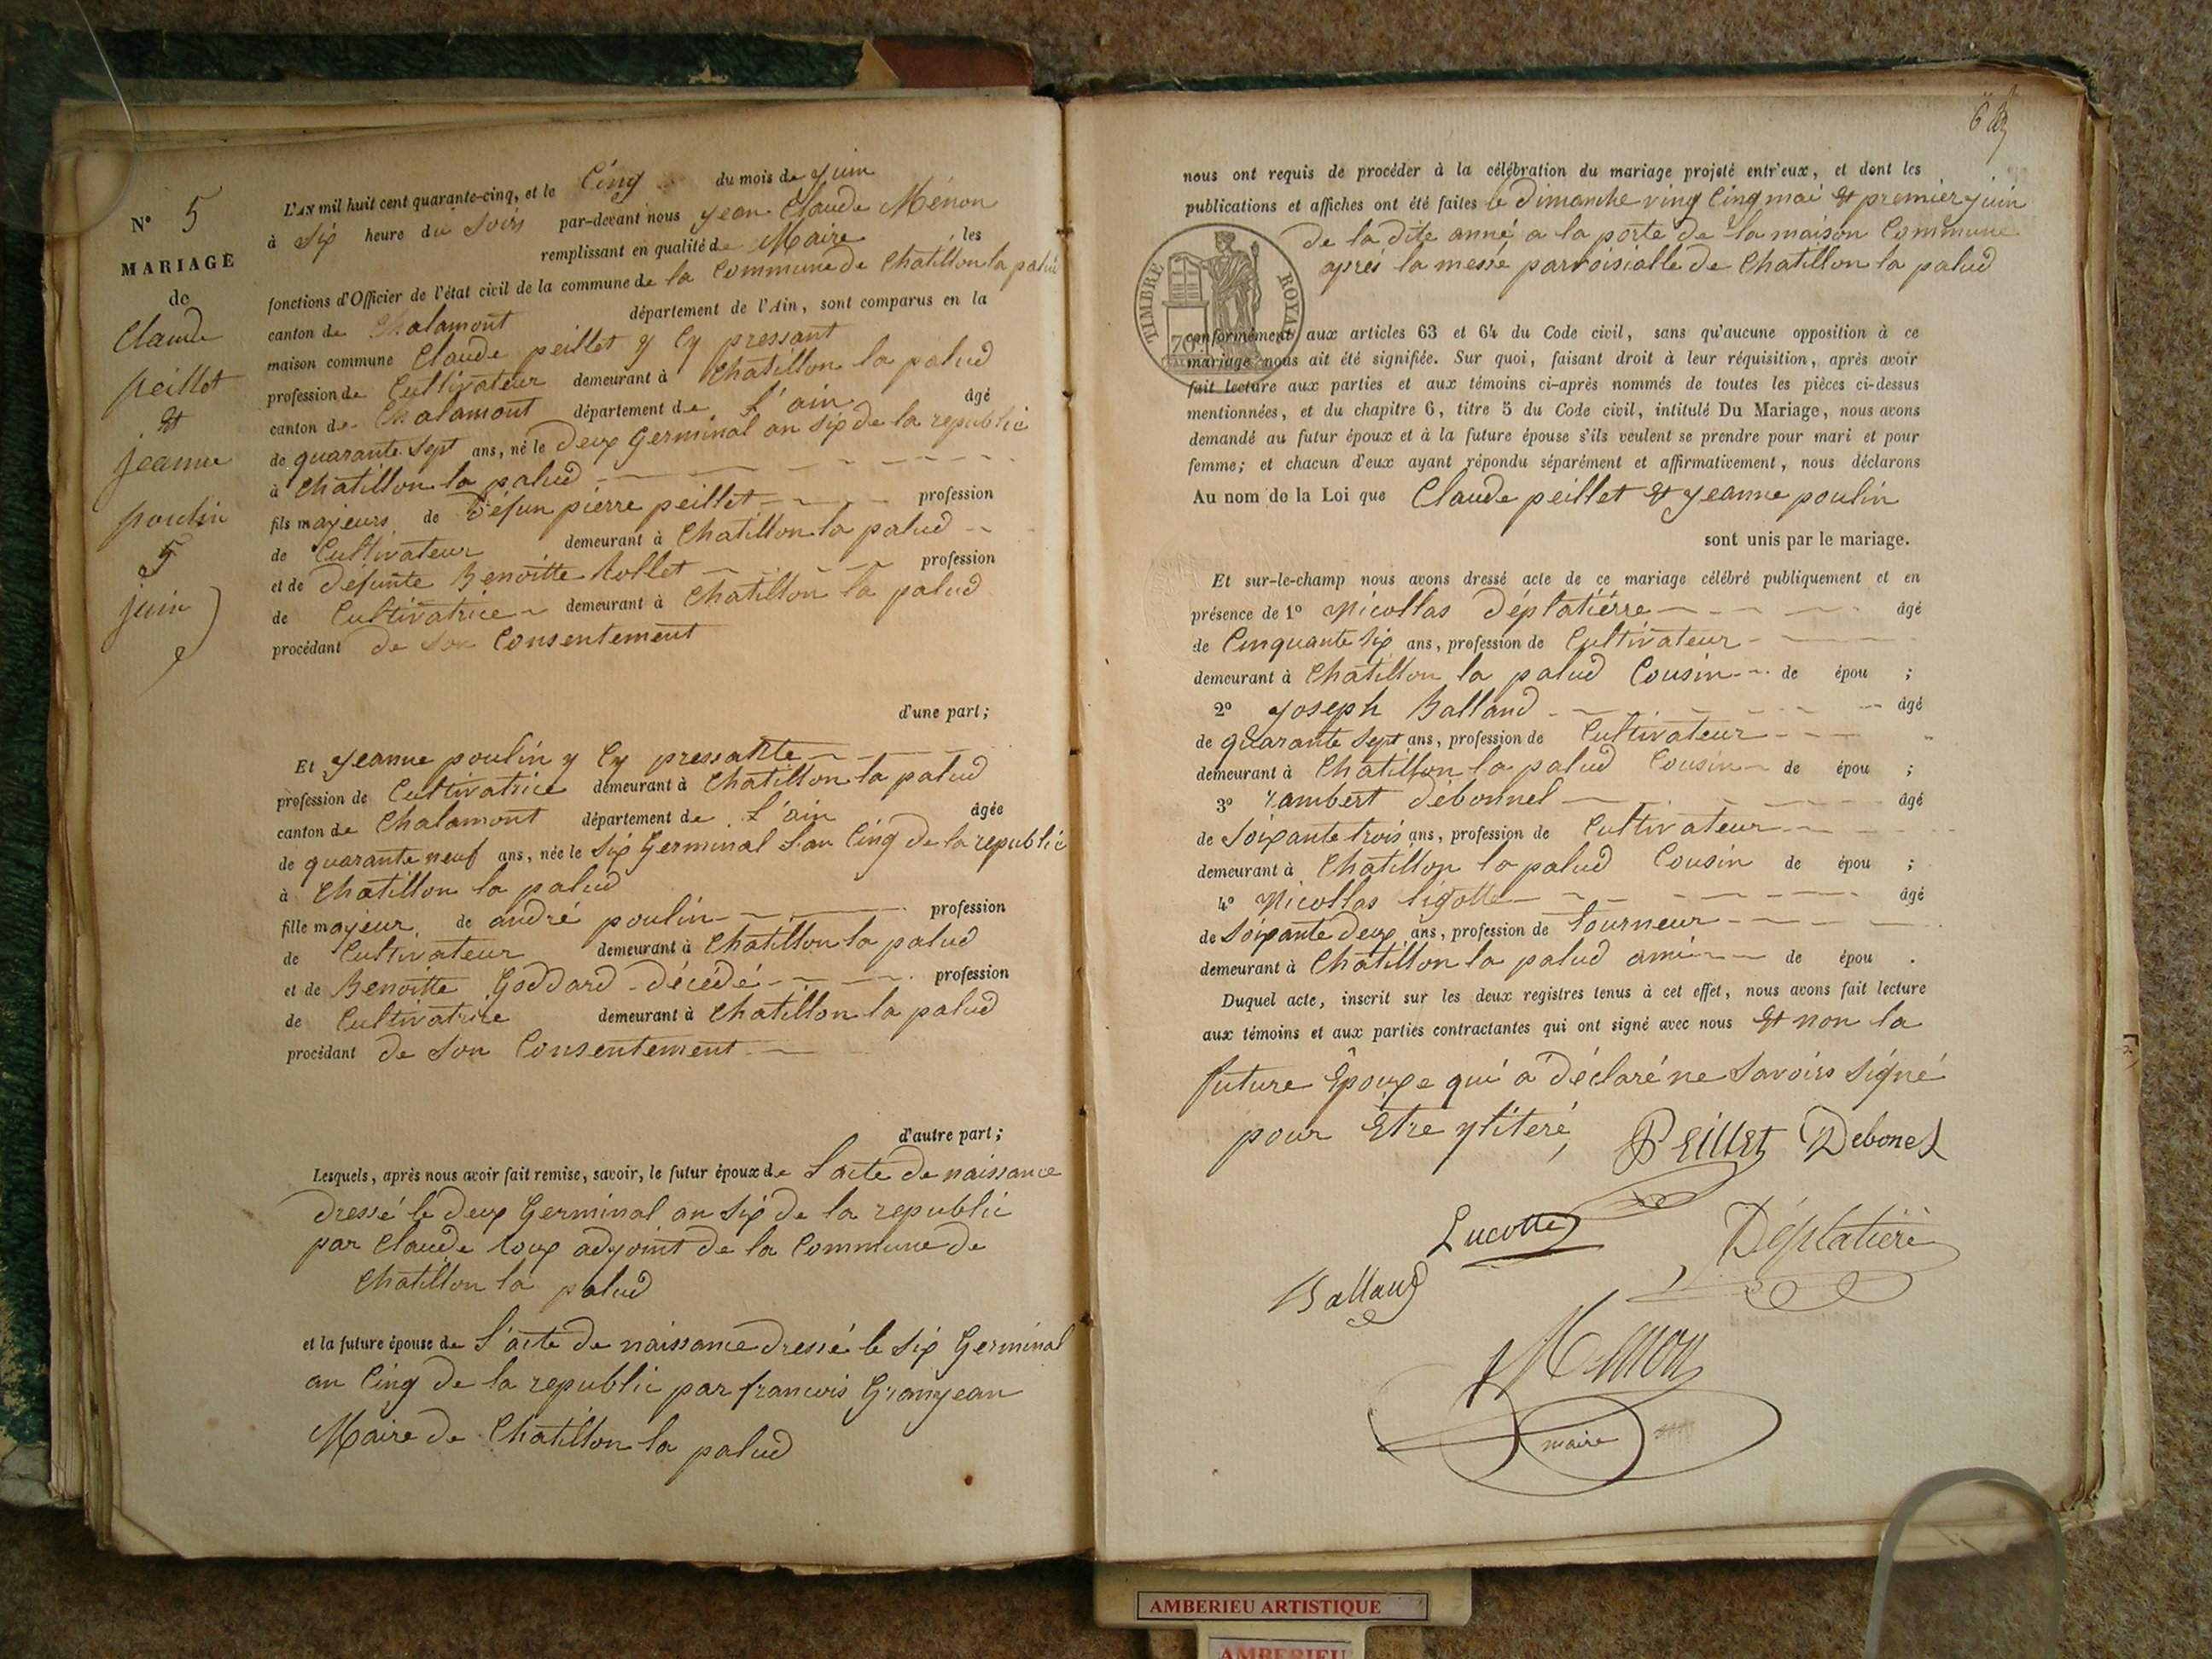 N° 5
MARIAGE
de
Claude
peillet
et
jeanne
poulin
5
juin
L'AN mil huit cent quarante-cinq, et le Cinq du mois de juin
à Six heure du Soirs par-devant nous jean Claude Ménon
remplissant en qualité de Maire les
fonctions d'Officier de l'état civil de la commune de la Commune de Chatillon la palud
canton de Chalamont département de l'Ain, sont comparus en la
maison commune Claude peillet y Cy pressant
profession de Cultivateur demeurant à Chatillon la palud
canton de Chalamont département de L'ain âgé
de quarante Sept ans, né le Deux Germinal an Six de la republic
à Chatillon la palud
fils majeurs de Défun pierre peillet profession
de Cultivateur demeurant à Chatillon la palud
et de Defunte Benoitte Rollet profession
de Cultivatrice demeurant à Chatillon la palud
procédant de Son Consentement
d'une part;
Et jeanne poulin y Cy pressante
profession de Cultivatrice demeurant à Chatillon la palud
canton de Chalamont département de L'ain âgée
de quarante neuf ans, née le Six Germinal L'an Cinq de la republic
à Chatillon la palud
fille majeur de andré poulin profession
de Cultivateur demeurant à Chatillon la palud
et de Benoitte Goddard Décédé profession
de Cultivatrice demeurant à Chatillon la palud
procédant de Son Consentement
d'autre part;
Lesquels, après nous avoir fait remise, savoir, le futur époux de L'acte De naissance
Dressé le Deux Germinal an Six De la republic
par Claude Roux adyoint De la Commune De
Chatillon la palud
et la future épouse de L'acte De naissance Dressé le Six Germinal
an Cinq De la republic par francois Granjean
Maire De Chatillon la palud
nous ont requis de procéder à la célébration du mariage projeté entr'eux, et dont les
publications et affiches ont été faites le Dimanche ving Cinq mai et premier juin
De la Dite anné a la porte De la maison Commune
aprés la messe parroisialle De Chatillon la palud
TIMBRE ROYAL
70
conformément aux articles 63 et 64 du Code civil, sans qu'aucune opposition à ce
mariage nous ait été signifiée. Sur quoi, faisant droit à leur réquisition, après avoir
fait lecture aux parties et aux témoins ci-après nommés de toutes les pièces ci-dessus
mentionnées, et du chapitre 6, titre 5 du Code civil, intitulé Du Mariage, nous avons
demandé au futur époux et à la future épouse s'ils veulent se prendre pour mari et pour
femme; et chacun d'eux ayant répondu séparément et affirmativement, nous déclarons
Au nom de la Loi que Claude peillet et jeanne poulin
sont unis par le mariage.
Et sur-le-champ nous avons dressé acte de ce mariage célébré publiquement et en
présence de 1° Nicollas Déplatiérre âgé
de Cinquante Six ans, profession de Cultivateur
demeurant à Chatillon la palud Cousin de épou ;
2° joseph Balland âgé
de quarante Sept ans, profession de Cultivateur
demeurant à Chatillon la palud Cousin de épou ;
3° Lambert Débonnel âgé
de Soixante trois ans, profession de Cultivateur
demeurant à Chatillon la palud Cousin de épou ;
4° Nicollas ligotte âgé
de Soixante Deux ans, profession de tourneur
demeurant à Chatillon la palud amie de épou .
Duquel acte, inscrit sur les deux registres tenus à cet effet, nous avons fait lecture
aux témoins et aux parties contractantes qui ont signé avec nous et non la
future Epouxe qui a Déclaré ne Savoirs Signé
pour Etre ylitéré
PEillet Debonel
Lucotte Déplatiere
Balland
Menon
maire
AMBERIEU ARTISTIQUE
AMBERIEU